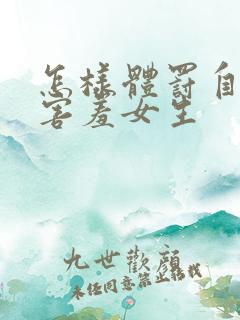 怎樣體罰自
害羞女生
九世歡顏
未經同意禁止轉載